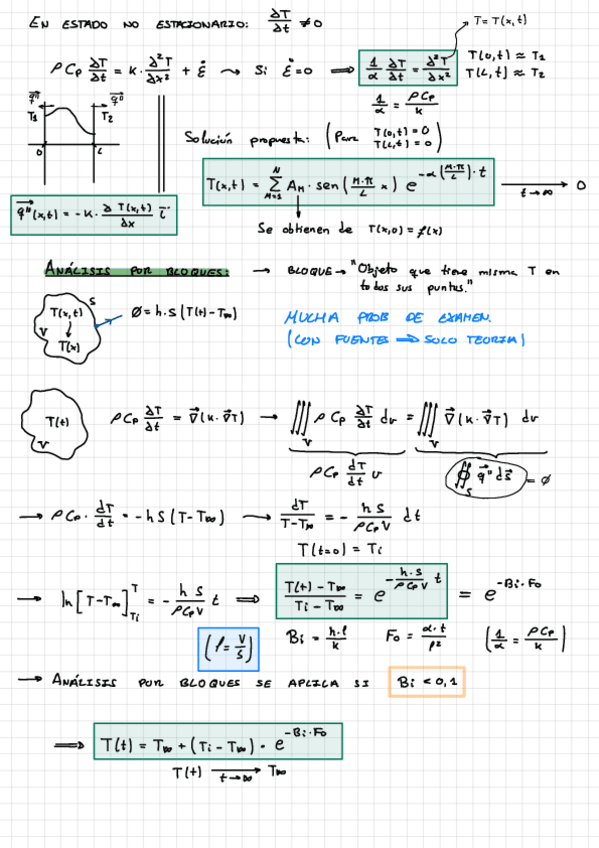 EN ESTADO NO ESTACIONARIO: ∂T/∂t ≠ 0
T = T(x,t)
ρCp ∂T/∂t = k · ∂²T/∂x² + ε̇ ⤳ Si ε̇ = 0 ⟹ 1/α ∂T/∂t = ∂²T/∂x²
T(0,t) ≈ T1
T(L,t) ≈ T2
1/α = ρCp/k
q" q"
T1 T2
0 L
Solución propuesta: (Para T(0,t) = 0
T(L,t) = 0)
T(x,t) = Σ(M=1, N) AM · sen(M·π/L x) e^(-α(M·π/L)·t) → t→∞ 0
q"(x,t) = -k · ∂T(x,t)/∂x i
Se obtienen de T(x,0) = f(x)
ANÁLISIS POR BLOQUES: → BLOQUE → "Objeto que tiene misma T en
todos sus puntos."
T(x,t) S
V T(x)
Ø = h·S (T(t) - T∞)
MUCHA PROB DE EXAMEN.
(CON FUENTES ⟹ SOLO TEORIA)
T(t)
V
ρCp ∂T/∂t = ∇(k·∇T) → ∭V ρCp ∂T/∂t dv = ∭V ∇(k·∇T) dv
ρCp dT/dt V
∯S q" ds = Ø
→ ρCp · dT/dt = -hS (T-T∞) → dT/T-T∞ = - hS/ρCpV dt
T(t=0) = Ti
→ ln[T-T∞]Ti^T = - hS/ρCpV t ⟹ T(t)-T∞/Ti-T∞ = e^(-h·S/ρCpV t) = e^(-Bi·Fo)
(l = V/S) Bi = h·l/k Fo = α·t/l² (1/α = ρCp/k)
→ ANÁLISIS POR BLOQUES SE APLICA SI Bi < 0,1
⟹ T(t) = T∞ + (Ti - T∞) · e^(-Bi·Fo)
T(t) → t→∞ T∞